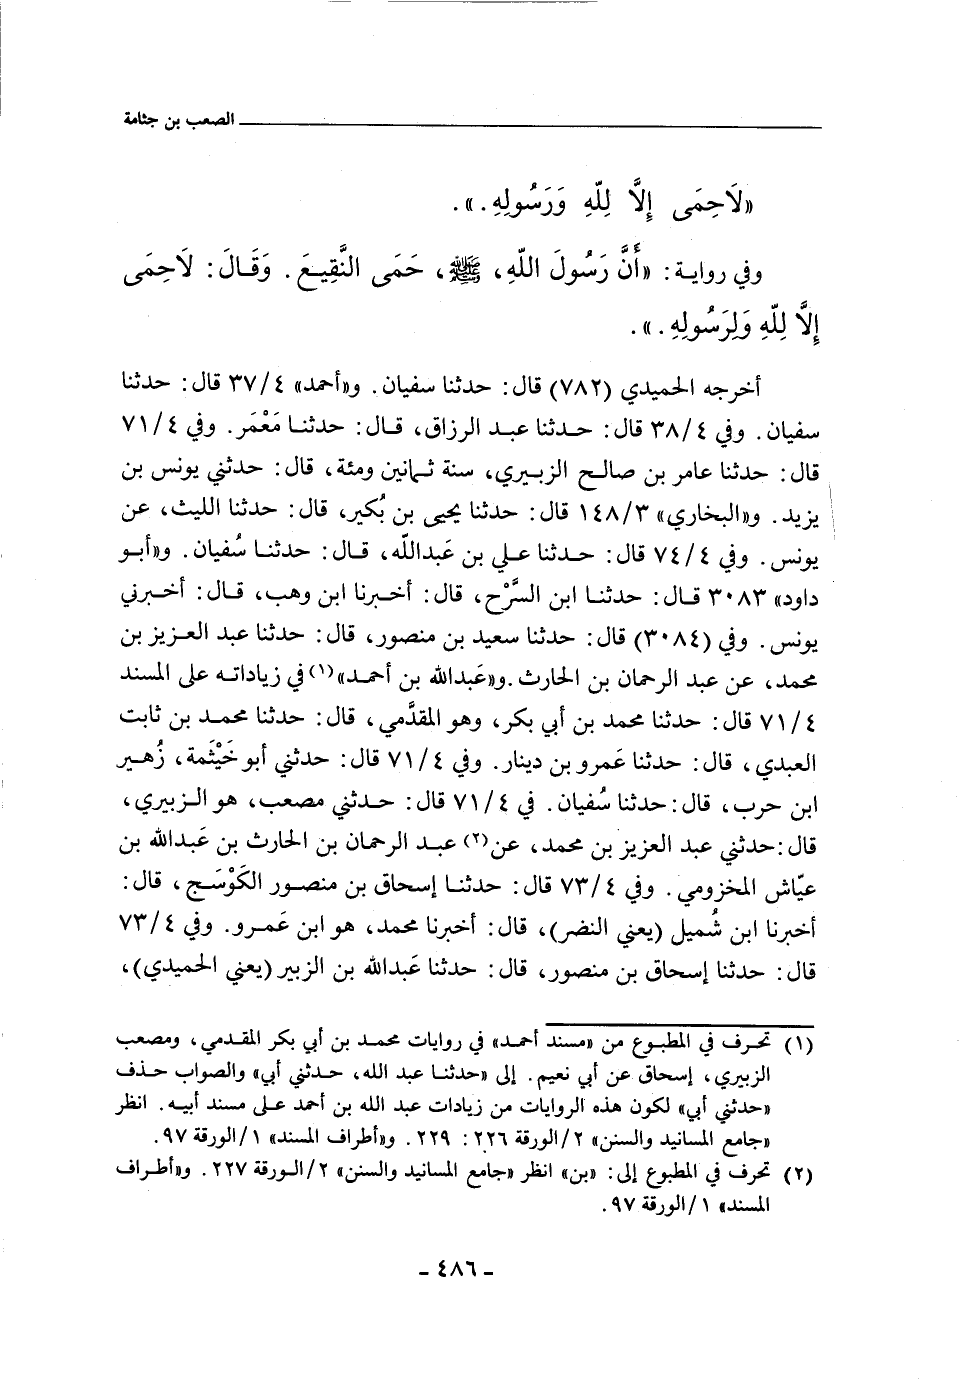 الصعب بن جثامة
«لَاحِمَى إِلَّا لِلّٰهِ وَرَسُولِهِ.».
وفي رواية: «أَنَّ رَسُولَ اللّٰهِ، ﷺ، حَمَى النَّقِيعَ. وَقَالَ: لَاحِمَى
إِلَّا لِلّٰهِ وَلِرَسُولِهِ.».
أخرجه الحميدي (٧٨٢) قال: حدثنا سفيان. و«أحمد» ٣٧/٤ قال: حدثنا
سفيان. وفي ٣٨/٤ قال: حدثنا عبد الرزاق، قال: حدثنا مَعْمَر. وفي ٧١/٤
قال: حدثنا عامر بن صالح الزبيري، سنة ثمانين ومئة، قال: حدثني يونس بن
يزيد. و«البخاري» ١٤٨/٣ قال: حدثنا يحيى بن بُكير، قال: حدثنا الليث، عن
يونس. وفي ٧٤/٤ قال: حدثنا علي بن عَبدالله، قال: حدثنا سُفيان. و«أبو
داود» ٣٠٨٣ قال: حدثنا ابن السَّرْح، قال: أخبرنا ابن وهب، قال: أخبرني
يونس. وفي (٣٠٨٤) قال: حدثنا سعيد بن منصور، قال: حدثنا عبد العزيز بن
محمد، عن عبد الرحمان بن الحارث.و«عَبدالله بن أحمد»(١) في زياداته على المسند
٧١/٤ قال: حدثنا محمد بن أبي بكر، وهو المقدَّمي، قال: حدثنا محمد بن ثابت
العبدي، قال: حدثنا عَمرو بن دينار. وفي ٧١/٤ قال: حدثني أبو خَيْثَمة، زُهير
ابن حرب، قال:حدثنا سُفيان. في ٧١/٤ قال: حدثني مصعب، هو الزبيري،
قال:حدثني عبد العزيز بن محمد، عن(٢) عبد الرحمان بن الحارث بن عَبدالله بن
عيّاش المخزومي. وفي ٧٣/٤ قال: حدثنا إسحاق بن منصور الكَوْسَج، قال:
أخبرنا ابن شُميل (يعني النضر)، قال: أخبرنا محمد، هو ابن عَمرو. وفي ٧٣/٤
قال: حدثنا إسحاق بن منصور، قال: حدثنا عَبدالله بن الزبير (يعني الحميدي)،
(١) تحرف في المطبوع من «مسند أحمد» في روايات محمد بن أبي بكر المقدمي، ومصعب
الزبيري، إسحاق عن أبي نعيم. إلى «حدثنا عبد الله، حدثني أبي» والصواب حذف
«حدثني أبي» لكون هذه الروايات من زيادات عبد الله بن أحمد على مسند أبيه. انظر
«جامع المسانيد والسنن» ٢/الورقة ٢٢٦: ٢٢٩. و«أطراف المسند» ١/الورقة ٩٧.
(٢) تحرف في المطبوع إلى: «بن» انظر «جامع المسانيد والسنن» ٢/الورقة ٢٢٧. و«أطراف
المسند» ١/الورقة ٩٧.
- ٤٨٦ -